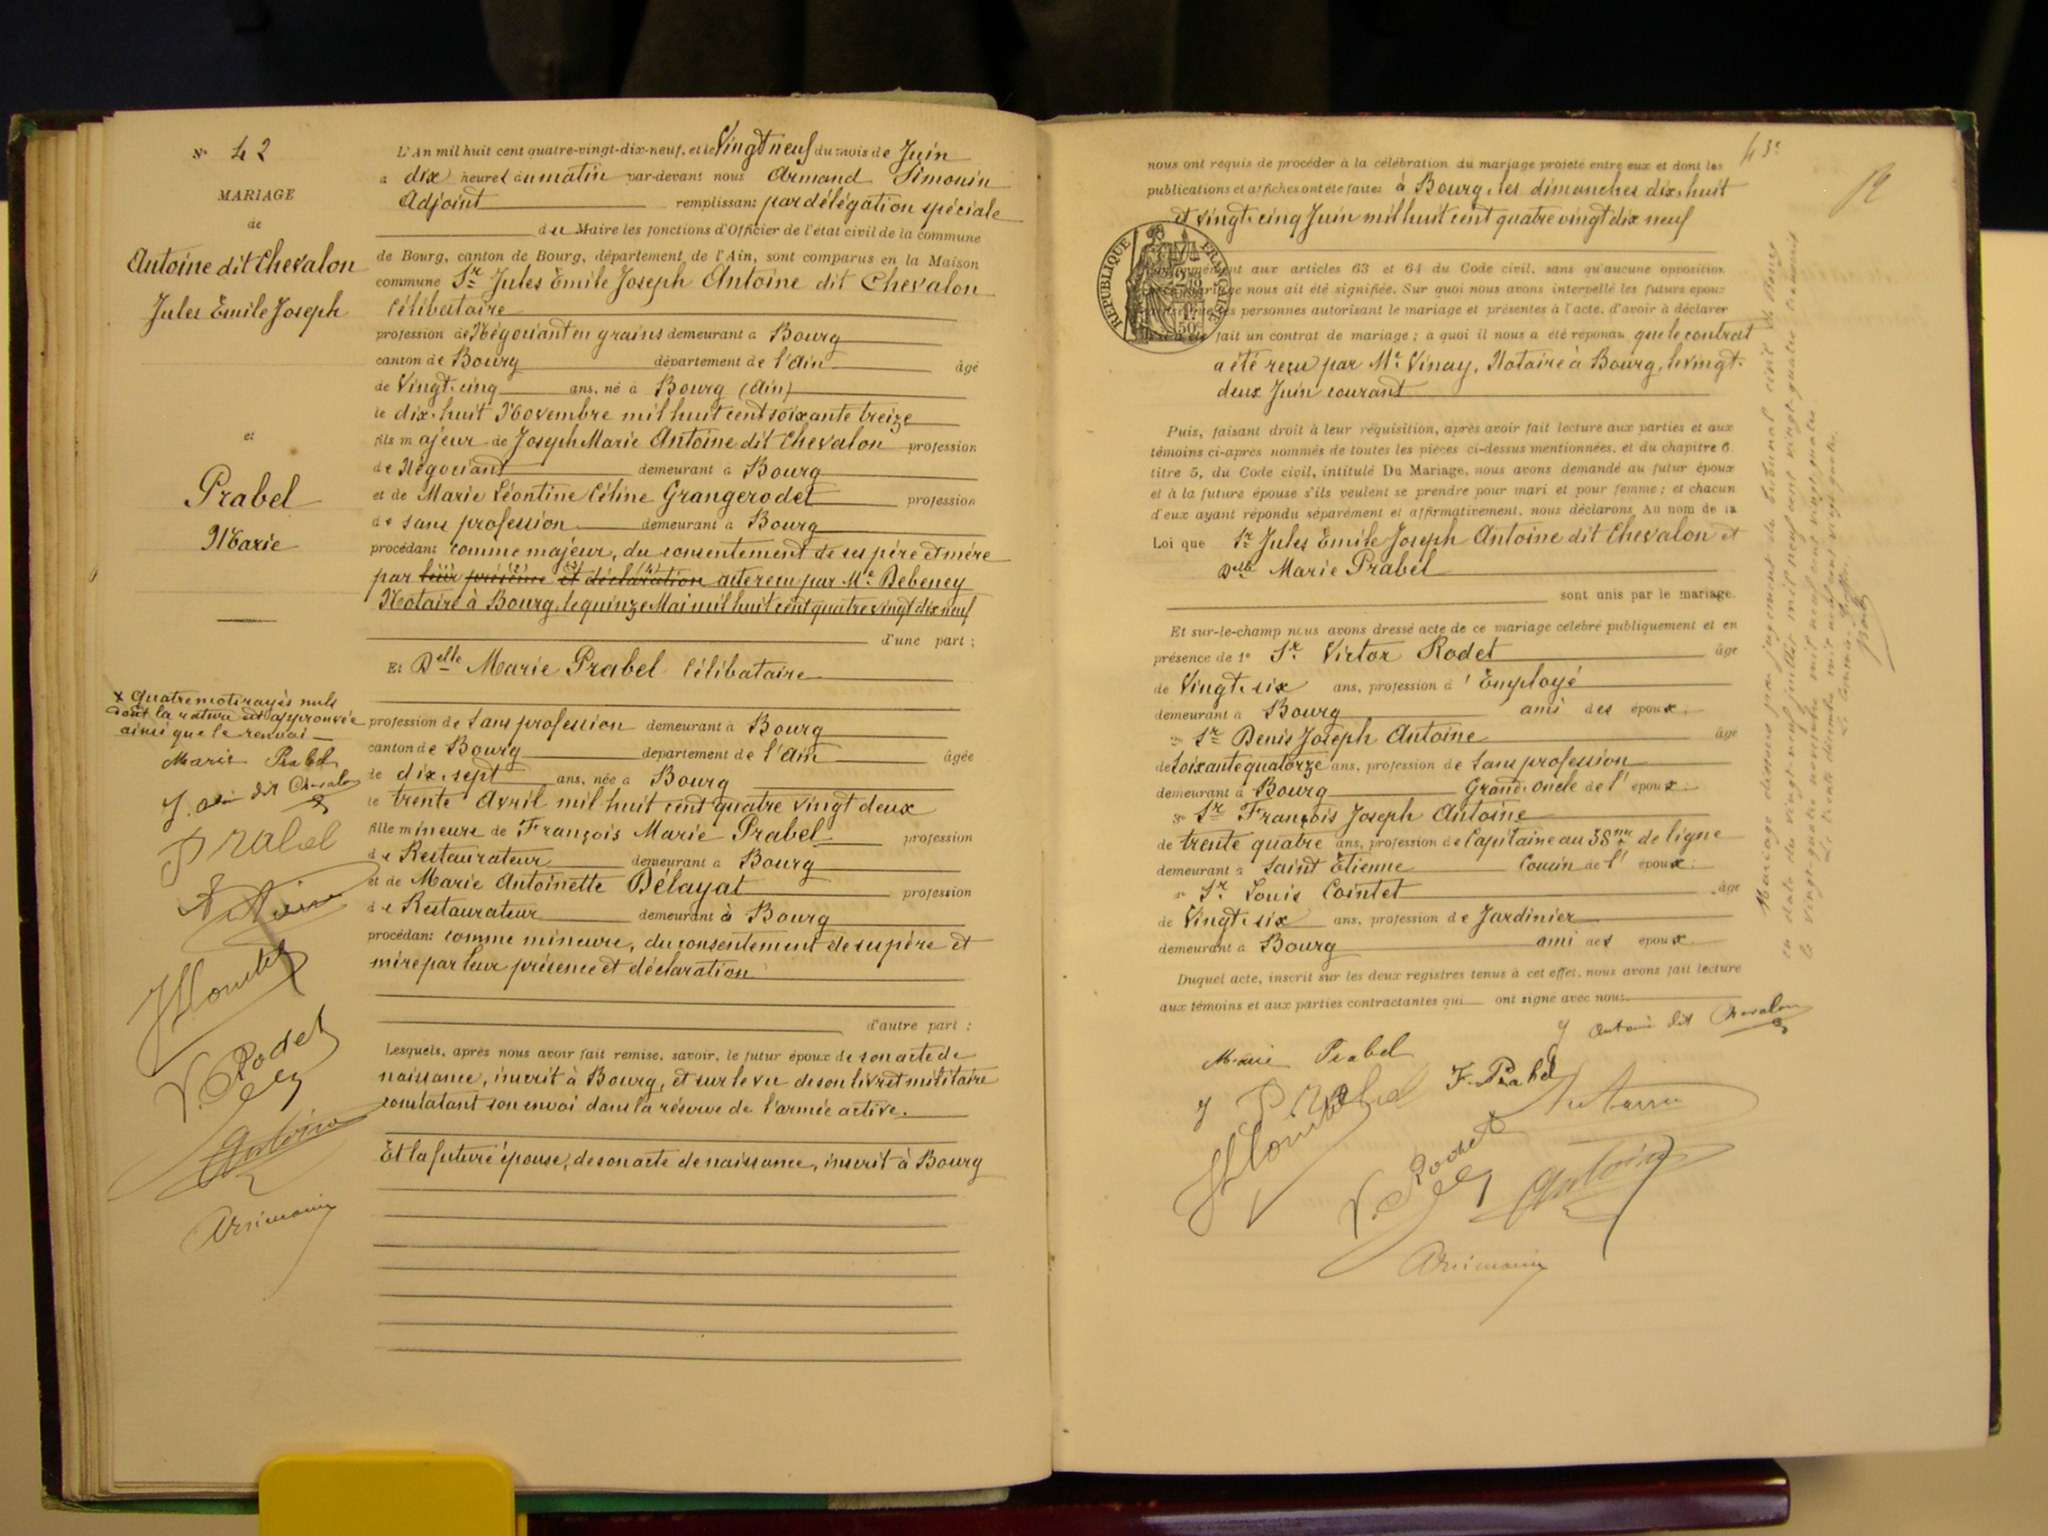 N° 42
MARIAGE
de
Antoine dit Chevalon
Jules Emile Joseph
et
Prabel
Marie
x quatre mots rayés nuls
dont la rature est approuvée
ainsi que le renvoi
Marie Prabel
J. Antoine dit Chevalon
Prabel
V. Rodet
Antoine
L'An mil huit cent quatre-vingt-dix-neuf, et le Vingt neuf du mois de Juin
à dix heures du matin par-devant nous Armand Simonin
Adjoint remplissant par délégation spéciale
du Maire les fonctions d'Officier de l'état civil de la commune
de Bourg, canton de Bourg, département de l'Ain, sont comparus en la Maison
commune Sr Jules Emile Joseph Antoine dit Chevalon
Célibataire
profession de Négociant en grains demeurant à Bourg
canton de Bourg département de l'Ain âgé
de Vingt-cinq ans, né à Bourg (Ain)
le dix-huit Novembre mil huit cent soixante treize
fils majeur de Joseph Marie Antoine dit Chevalon profession
de Négociant demeurant à Bourg
et de Marie Léontine Céline Grangerodet profession
de sans profession demeurant à Bourg
procédant comme majeur, du consentement de ses père et mère
par leur présence et déclaration acte reçu par Me Debeney
Notaire à Bourg, le quinze Mai mil huit cent quatre vingt dix neuf
d'une part ;
Et Delle Marie Prabel Célibataire
profession de Sans profession demeurant à Bourg
canton de Bourg département de l'Ain âgée
de dix-sept ans, née à Bourg
le trente Avril mil huit cent quatre vingt deux
fille mineure de François Marie Prabel profession
de Restaurateur demeurant à Bourg
et de Marie Antoinette Délayat profession
de Restaurateur demeurant à Bourg
procédant comme mineure, du consentement de ses père et
mère par leur présence et déclaration
d'autre part ;
Lesquels, après nous avoir fait remise, savoir, le futur époux de son acte de
naissance, inscrit à Bourg, et sur le vu de son livret militaire
constatant son envoi dans la réserve de l'armée active.
Et la future épouse, de son acte de naissance, inscrit à Bourg
43
nous ont requis de procéder à la célébration du mariage projeté entre eux et dont les
publications et affiches ont été faites à Bourg, les dimanches dix-huit
et vingt-cinq Juin mil huit cent quatre vingt dix neuf
RÉPUBLIQUE FRANÇAISE
aux articles 63 et 64 du Code civil, sans qu'aucune opposition
nous ait été signifiée. Sur quoi nous avons interpellé les futurs époux
personnes autorisant le mariage et présentes à l'acte, d'avoir à déclarer
fait un contrat de mariage ; à quoi il nous a été répondu que le contrat
a été reçu par Me Vinay, Notaire à Bourg, le vingt-
deux Juin courant
Puis, faisant droit à leur réquisition, après avoir fait lecture aux parties et aux
témoins ci-après nommés de toutes les pièces ci-dessus mentionnées, et du chapitre 6
titre 5, du Code civil, intitulé Du Mariage, nous avons demandé au futur époux
et à la future épouse s'ils veulent se prendre pour mari et pour femme ; et chacun
d'eux ayant répondu séparément et affirmativement, nous déclarons Au nom de la
Loi que Sr Jules Emile Joseph Antoine dit Chevalon et
Delle Marie Prabel
sont unis par le mariage.
Et sur-le-champ nous avons dressé acte de ce mariage célébré publiquement et en
présence de 1° Sr Victor Rodet âgé
de Vingt-six ans, profession d'Employé
demeurant à Bourg ami des époux
2° Sr Denis Joseph Antoine âgé
de Soixante quatorze ans, profession de Sans profession
demeurant à Bourg Grand-oncle de l'époux
3° Sr François Joseph Antoine
de trente quatre ans, profession de Capitaine au 38me de ligne
demeurant à Saint Etienne Cousin de l'époux
4° Sr Louis Cointet âgé
de Vingt-six ans, profession de Jardinier
demeurant à Bourg ami des époux
Duquel acte, inscrit sur les deux registres tenus à cet effet, nous avons fait lecture
aux témoins et aux parties contractantes qui ont signé avec nous
Marie Prabel
J Antoine dit Chevalon
J Prabel
F. Prabel
V. Rodet
Antoine
Mariage dissous par jugement du tribunal civil de Bourg
en date du vingt-neuf juillet mil neuf cent vingt-quatre transcrit
le vingt-quatre novembre mil neuf cent vingt-quatre.
Le trente décembre mil neuf cent vingt-quatre.